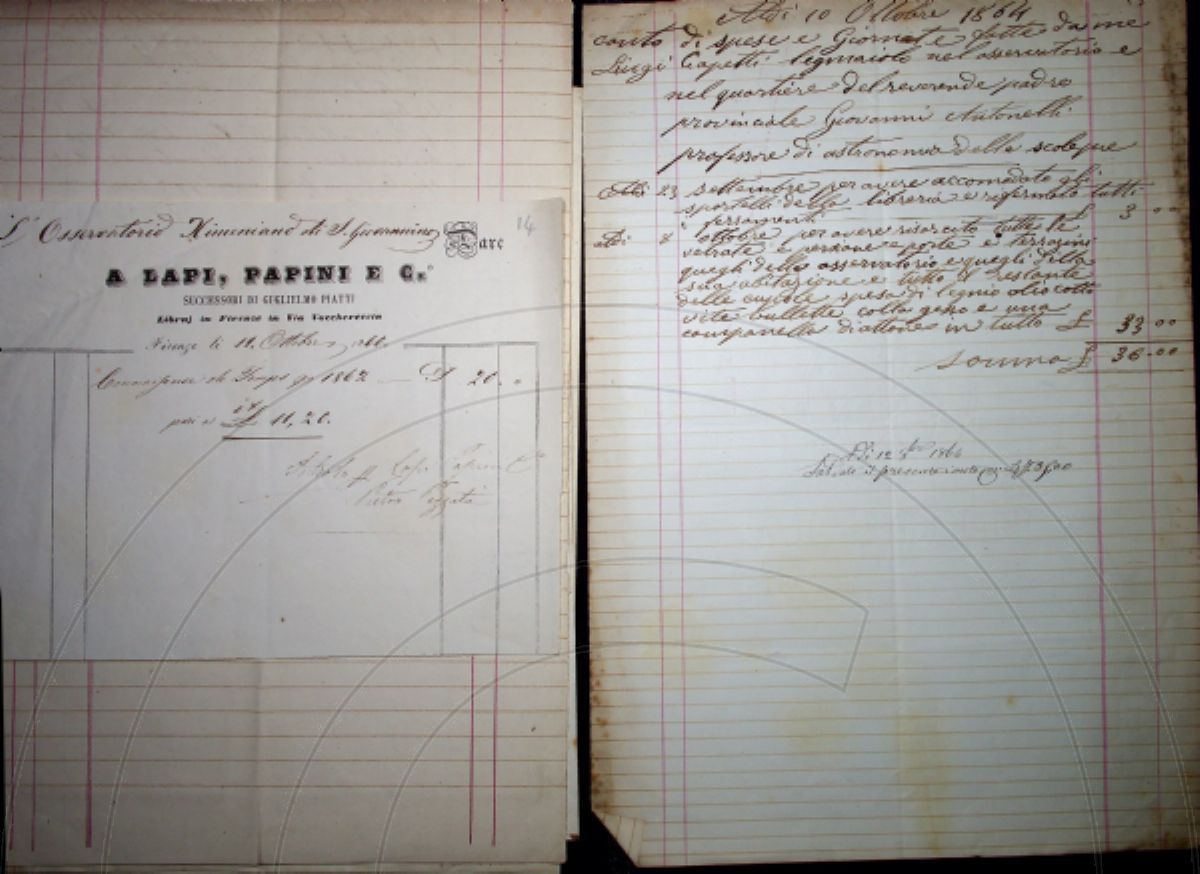 L' Osservatorio Ximeniano di S. Giovannino Dare
14
A LAPI, PAPINI E C.°
SUCCESSORI DI GUGLIELMO PIATTI
Libraj in Firenze in Via Vacchereccia
Firenze li 11. Ottobre
20. "
pari a it £ 11, 20.
Lapi Papini e C.°
Pietro
Adi 10 Ottobre 1864
conto di spese e Giornate fatte da me
Luigi Capetti legniaiolo nel osservatorio e
nel quartiere del reverende padre
provinciale Giovanni Antonelli
professore di astronomia delle scole pie
Adi 23 settembre per avere accomodato gli
sportelli della libreria e rifermato tutti
£ 3 00
adi 8 ottobre per avere risarcito tutte le
vetrate e persiane e porte e terrazini
quegli dello osservatorio e quegli della
sua abitazione e tutto il restante
delle spesa di legnio olio cotto
vite bullette colla geso e una
campanella di attone in tutto £ 33 00
somma £ 36 00
Adi 12 1864
il presente conto